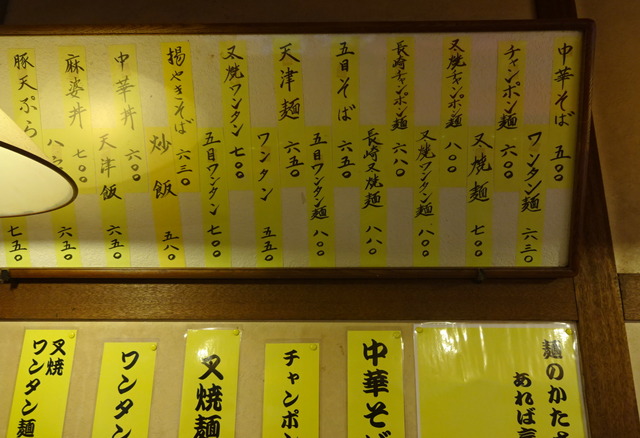 中華そば 五〇〇
ワンタン麺 六三〇
チャンポン麺 六〇〇
叉焼麺 七〇〇
叉焼チャンポン麺 八〇〇
叉焼ワンタン麺 八〇〇
長崎チャンポン麺 六八〇
長崎叉焼麺 八八〇
五目そば 六五〇
五目ワンタン麺 八〇〇
天津麺 六五〇
ワンタン 五五〇
叉焼ワンタン 七〇〇
五目ワンタン 七〇〇
揚やきそば 六三〇
炒飯 五八〇
中華丼 六〇〇
天津飯 六五〇
麻婆丼 七〇〇
六五〇
豚天ぷら
七五〇
麺のかた
あれば言
中華そば
チャンポン
叉焼麺
ワンタン
叉焼
ワンタン麺